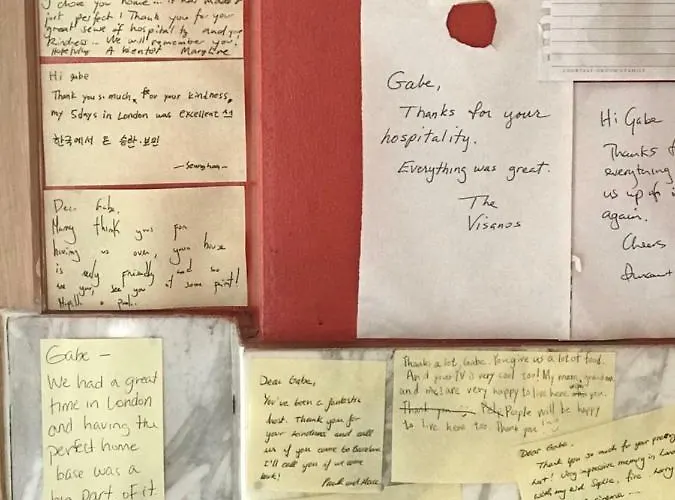 I chose your home... it has made
just perfect! Thank you for your
great sense of hospitality and your
kindness... We will remember you!
Hopefully A bientôt Maryline
Hi gabe
Thank you so much, for your kindness,
my 5days in London was excellent
한국에서 온 승환·보민
- Seunghwan -
Dear Gabe,
Many think yous for
having us over, your house
is really friendly and we
see you, see you at some point!
Gabe,
Thanks for your
hospitality.
Everything was great.
The
Visanos
Hi Gabe
Thanks f
everything
us up
again.
Cheers
Gabe -
We had a great
time in London
and having the
perfect home
base was a
big part of it
Dear Gabe,
You've been a fantastic
host. Thank you for
your kindness and call
us if you come to Barcelona
I'll call you if we come
back!
Thanks a lot, Gabe. You give us a lot of food.
And your TV is very cool too! My mom, grandma
and me is are very happy to live here with you.
Thank you People will be happy
to live here too. Thank you!
Dear Gabe.
Thank you so much for your
hot! Very impressive memory in Lon
with my